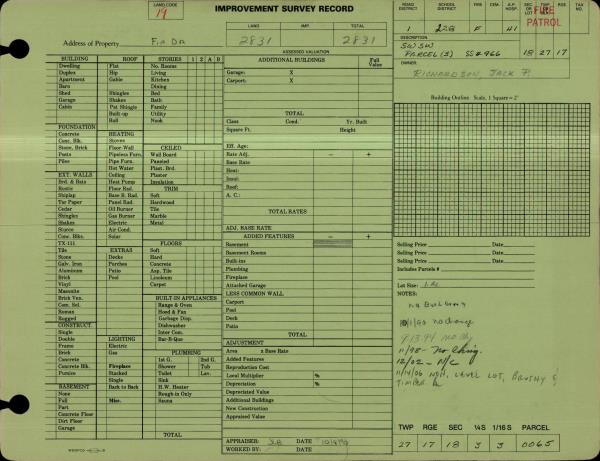 LAND CODE
19
IMPROVEMENT SURVEY RECORD
Address of Property Fir Dr
LAND IMP. TOTAL
2831 2831
ASSESSED VALUATION
ROAD DISTRICT SCHOOL DISTRICT FIRE A.P. HOSP. SEC OR LOT TWP RGE
1 228 F H1 18 27 17
FIRE PATROL
DESCRIPTION
SWSW
PARCEL (3) SS#966
OWNER
RICHARDSON, JACK P.
BUILDING ROOF STORIES 1 2 A B
Dwelling Flat No. Rooms
Duplex Hip Living
Apartment Gable Kitchen
Barn Dining
Shed Shingles Bed
Garage Shakes Bath
Cabin Pat Shingle Family
Built-up Utility
Roll Nook
FOUNDATION
Concrete HEATING
Conc. Blk. Stoves CEILED
Stone, Brick Floor Wall Wall Board
Posts Pipeless Furn. Painted
Piles Pipe Furn. Plast. Brd.
Hot Water Plaster
EXT. WALLS Ceiling Insulation
Brd. & Bats Heat Pump TRIM
Rustic Floor Rad. Soft
Shiplap Base B. Rad. Hardwood
Tar Paper Panel Rad. Tile
Cedar Oil Burner Marble
Shingles Gas Burner Metal
Shakes Electric
Stucco Air Cond.
Conc. Blks. Solar
TX-111 FLOORS
Tile EXTRAS Soft
Stone Decks Hard
Galv. Iron Porches Concrete
Aluminum Patio Asp. Tile
Brick Pool Linoleum
Vinyl Carpet
Masonite
Brick Ven. BUILT-IN APPLIANCES
Com. Sel. Range & Oven
Roman Hood & Fan
Rugged Garbage Disp.
CONSTRUCT. Dishwasher
Single Inter Com.
Double LIGHTING Bar-B-Que
Frame Electric
Brick Gas PLUMBING
Concrete 1st G. 2nd G.
Concrete Blk. Fireplace Shower Tub
Pumice Stacked Toilet Lav.
Single Sink
BASEMENT Back to Back H.W. Heater
None Rough-in Only
Full Misc. Sauna
Part
Concrete Floor
Dirt Floor
Garage
TOTAL
ADDITIONAL BUILDINGS Full Value
Garage: X
Carport: X
TOTAL
Class Cond. Yr. Built
Square Ft. Height
Eff. Age:
Rate Adj. - +
Base Rate
Heat:
Insul:
Roof:
A. C.:
TOTAL RATES
ADJ. BASE RATE
ADDED FEATURES - +
Basement
Basement Rooms
Built-ins
Plumbing
Fireplace
Attached Garage
LESS COMMON WALL
Carport
Pool
Deck
Patio
TOTAL
ADJUSTMENT
Area x Base Rate
Added Features
Reproduction Cost
Local Multiplier %
Depreciation %
Depreciated Value
Additional Buildings
New Construction
Appraised Value
APPRAISER: DATE
WORKED BY: DATE
Building Outline Scale, 1 Square = 2'
Selling Price Date
Selling Price Date
Selling Price Date
Includes Parcels #
Lot Size:
NOTES:
no Buildings
no change
9/13/94 no chg
11/98 - no chng.
12/02 - N/C
11/14/06 NOH, LEVEL LOT, BRUSHY &
TIMBER
TWP RGE SEC ¼S 1/16 S PARCEL
27 17 18 3 3 0065